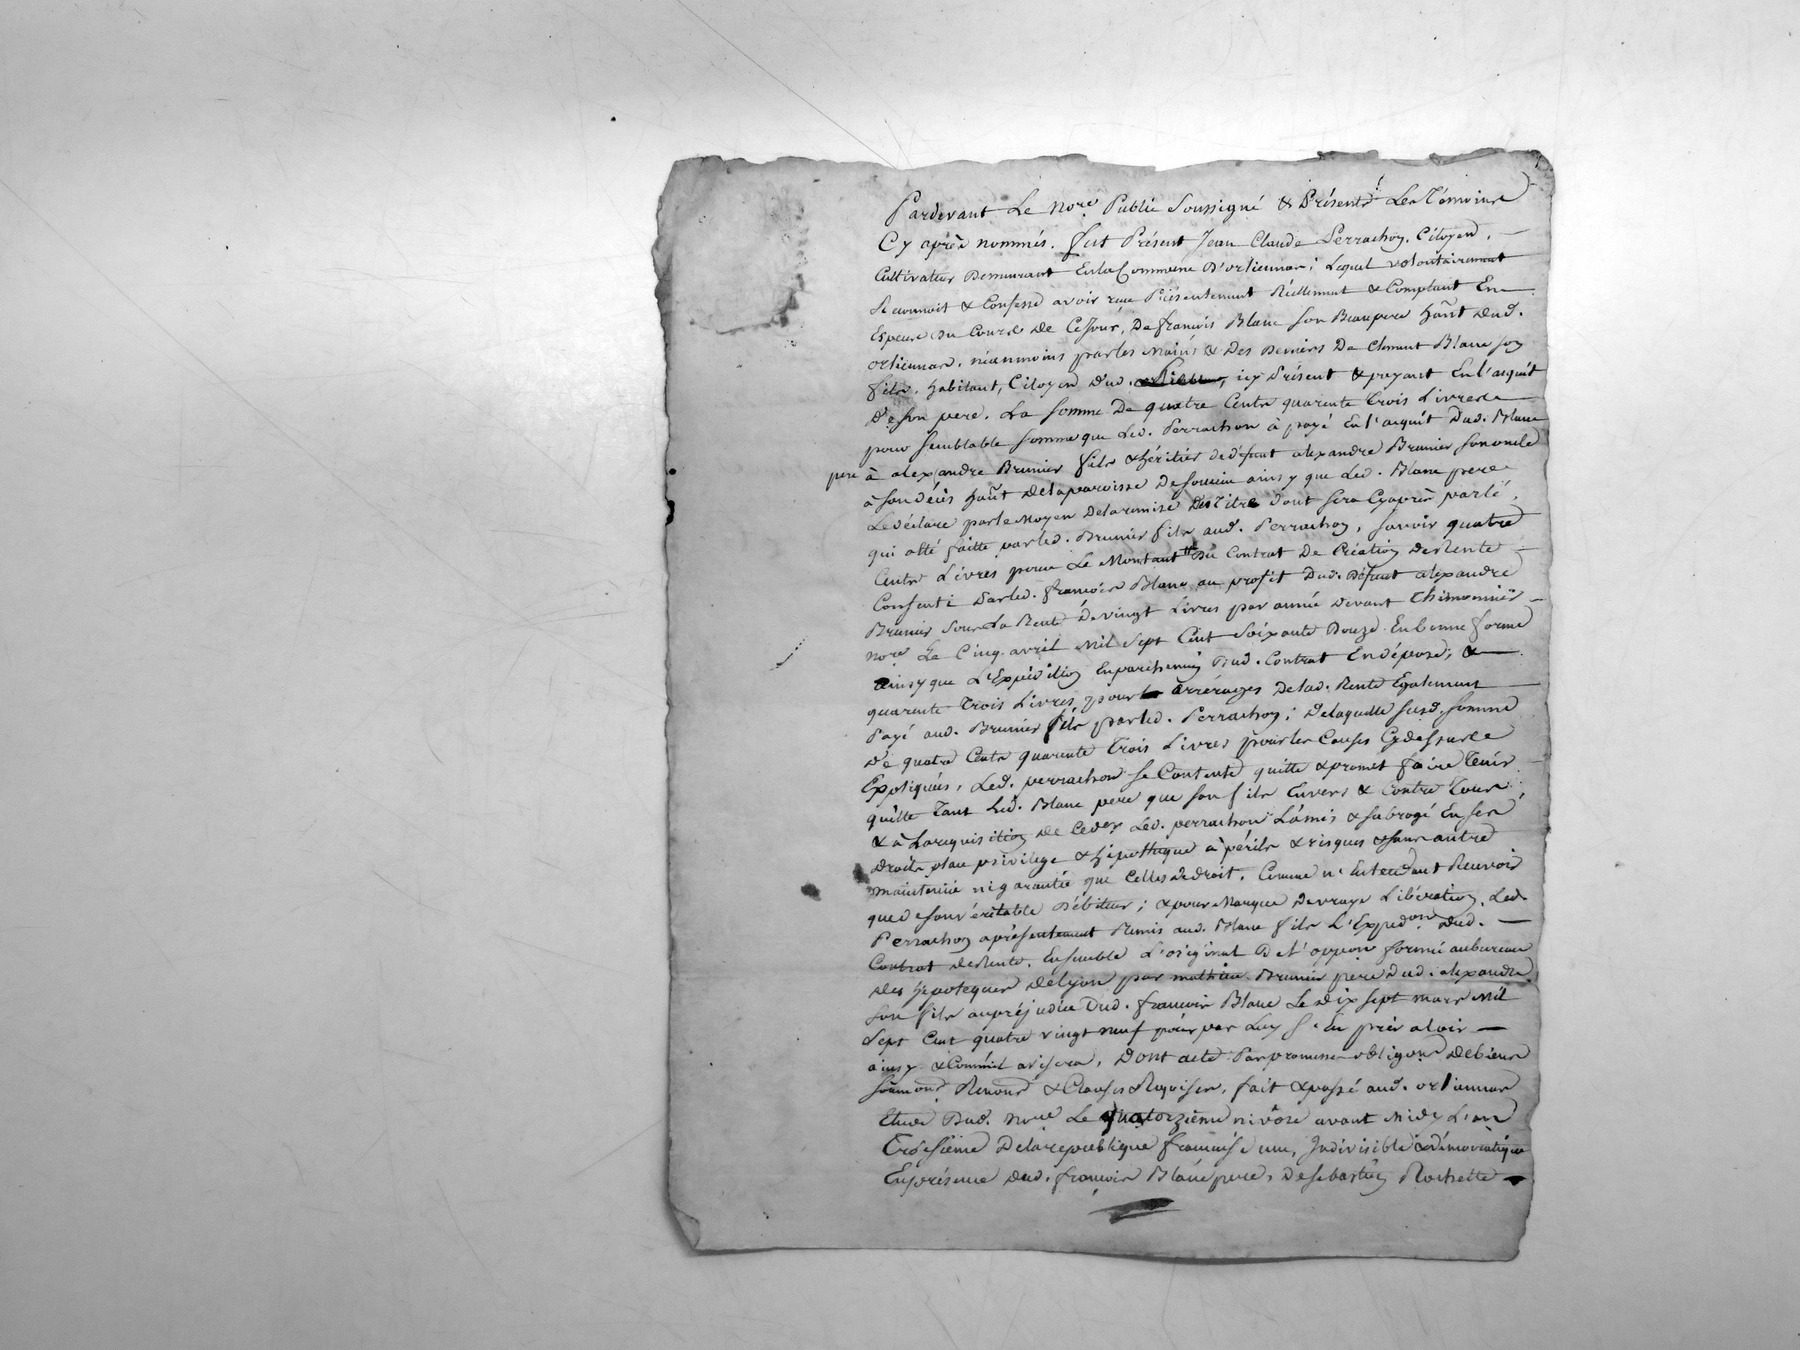 Pardevant Le nore Public Soussigné & Présents Les Témoins
Cy après nommés. fut Présent Jean Claude Perrachon, Citoyen,
Cultivateur Demeurant En la Commune D'orliennas; Lequel volontairement
Reconnoit & Confesse avoir reçu Présentement Réellement & Comptant En
Espece du Cours de Ce Jour, De francois Blanc son Beaupere hant dud.
orliennas. néanmoins par les mains & Des Deniers De Clement Blanc son
fils, habitant, Citoyen dud. , icy Présent & payant En l'acquit
De son pere. La somme De quatre Cents quarente Trois Livres
pour semblable somme que Led. Perrachon à payé En l'acquit Dud. Blanc
pere à alexandre Brunier fils & héritier de défunt alexandre Brunier son oncle
à son décès hant de la paroisse De soucieu ainsy que Led. Blanc pere
Le déclare par le Moyen De la remise Des Titre dont sera Cy après parlé,
qui a été faitte par led. Brunier fils aud. Perrachon, savoir quatre
Cents Livres pour Le Montant Du Contrat De Création de Rente
Consenti Par led. francois Blanc au profit Dud. Défunt alexandre
Brunier sous La Rente De vingt Livres par année Devant Thimonnier
nore Le Cinq avril Mil Sept Cent Soixante Douze En bonne forme
ainsy que L'Expédition En parchemin Dud. Contrat En dépose; &
quarente Trois Livres, pour arrérages De lad. Rente Egalement
Payé aud. Brunier fils par led. Perrachon; De laquelle susd. somme
De quatre Cents quarente Trois Livres pour les Causes Cy dessus
Expliquées, Led. perrachon se Contente quitte & promet faire Tenir
quitte Tant Led. Blanc pere que son fils Envers & Contre Tous,
& à La requisition de Ce der Led. perrachon L'a mis & subrogé En ses
droits place privilege & hipotheque à périls & risques & sans autre
maintenüe ni garantie que Celles de droit, Comme n'Entendant Recevoir
que de son véritable Débiteur; & pour Marque De vraye Libération, Led.
Perrachon a présentement Remis aud. Blanc fils L'Expedon Dud.
Contrat de Rente, Ensemble L'original De l'oppon formé au bureau
des hipoteques De Lyon par mathieu Brunier pere Dud. alexandre
son fils au préjudice Dud. francois Blanc Le dix sept mars Mil
Sept Cent quatre vingt neuf pour par Luy s'En prévaloir
ainsy & Comm'il avisera, Dont acte Par promesse obligons De biens
soumons Renons & Clauses Requises, fait & passé aud. orliennas
Etude Dud. nore Le quatorzième nivôse avant midy L'an
Troisième De la republique francaise une, Indivisible & démocratique
En présence dud. francois Blanc pere, De sebastien Rochette